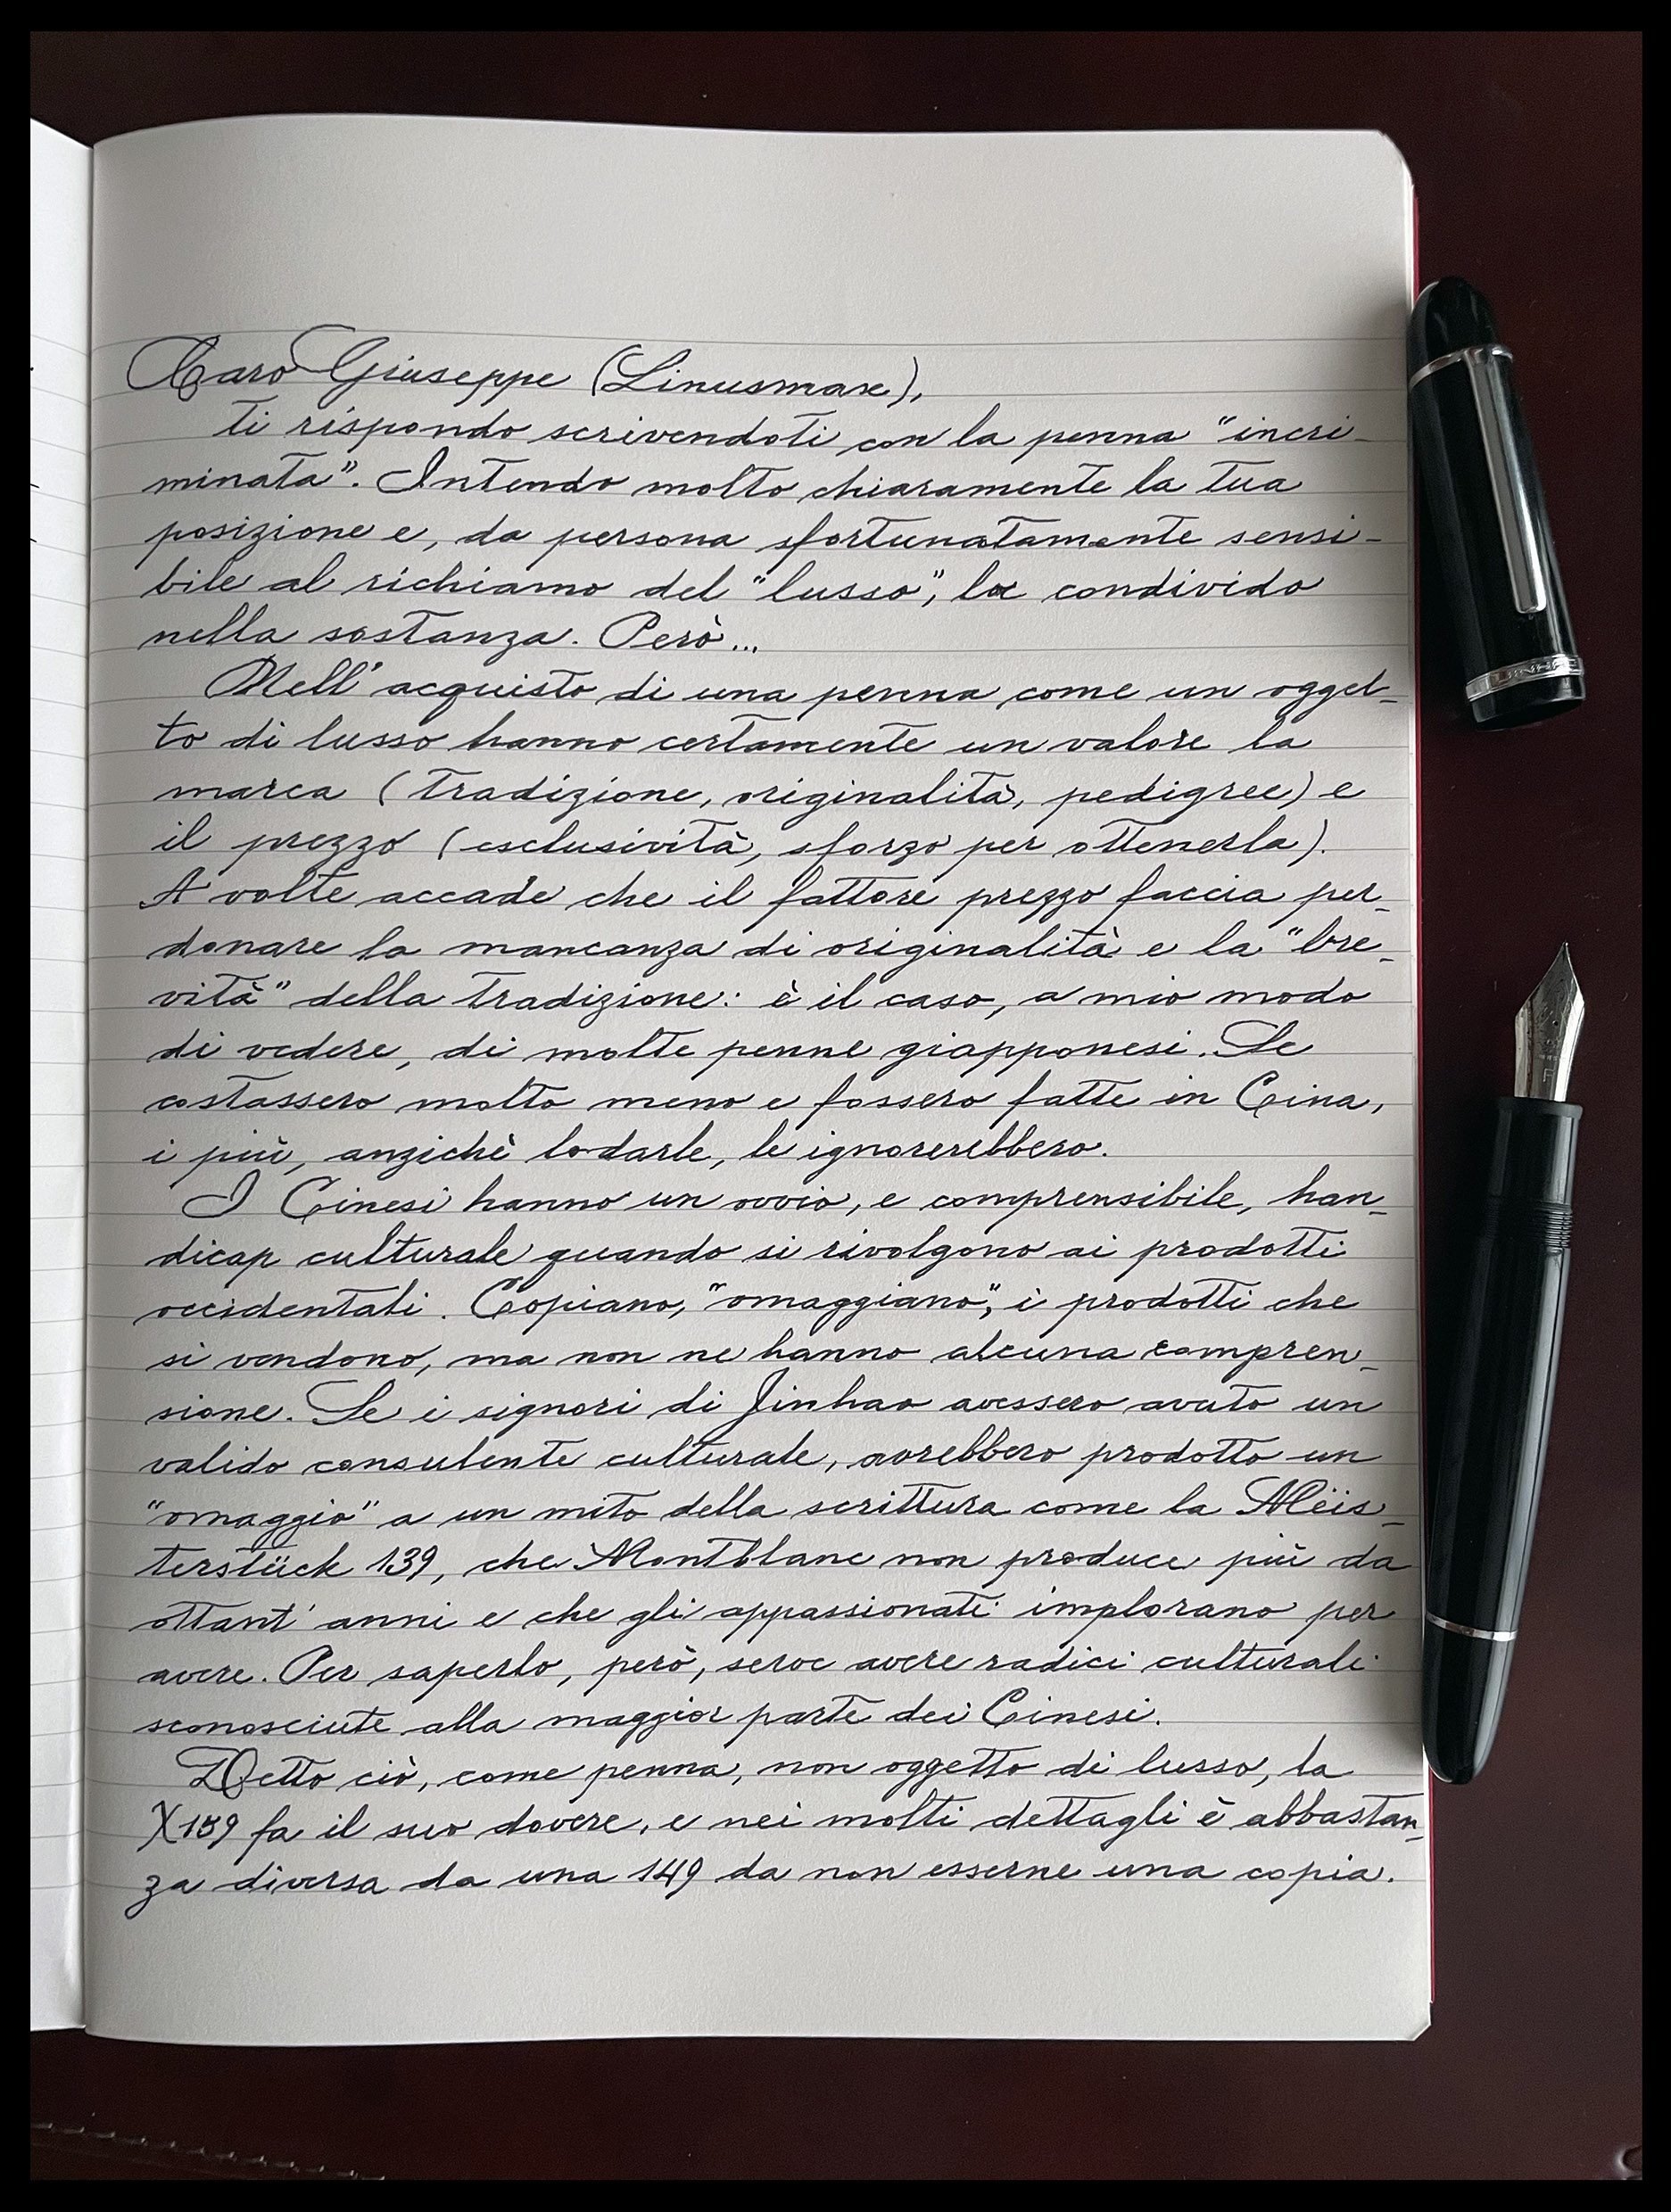 Caro Giuseppe (Linusmax),
ti rispondo scrivendoti con la penna "incri-
minata". Intendo molto chiaramente la tua
posizione e, da persona sfortunatamente sensi-
bile al richiamo del "lusso", la condivido
nella sostanza. Però...
Nell'acquisto di una penna come un ogget-
to di lusso hanno certamente un valore la
marca (tradizione, originalità, pedigree) e
il prezzo (esclusività, sforzo per ottenerla).
A volte accade che il fattore prezzo faccia per-
donare la mancanza di originalità e la "bre-
vità" della tradizione: è il caso, a mio modo
di vedere, di molte penne giapponesi. Se
costassero molto meno e fossero fatte in Cina,
i più, anzichè lodarle, le ignorerebbero.
I Cinesi hanno un ovvio, e comprensibile, han-
dicap culturale quando si rivolgono ai prodotti
occidentali. Copiano, "omaggiano", i prodotti che
si vendono, ma non ne hanno alcuna compren-
sione. Se i signori di Jinhao avessero avuto un
valido consulente culturale, avrebbero prodotto un
"omaggio" a un mito della scrittura come la Meis-
terstück 139, che Montblanc non produce più da
ottant'anni e che gli appassionati implorano per
avere. Per saperlo, però, serve avere radici culturali
sconosciute alla maggior parte dei Cinesi.
Detto ciò, come penna, non oggetto di lusso, la
X159 fa il suo dovere, e nei molti dettagli è abbastan-
za diversa da una 149 da non esserne una copia.